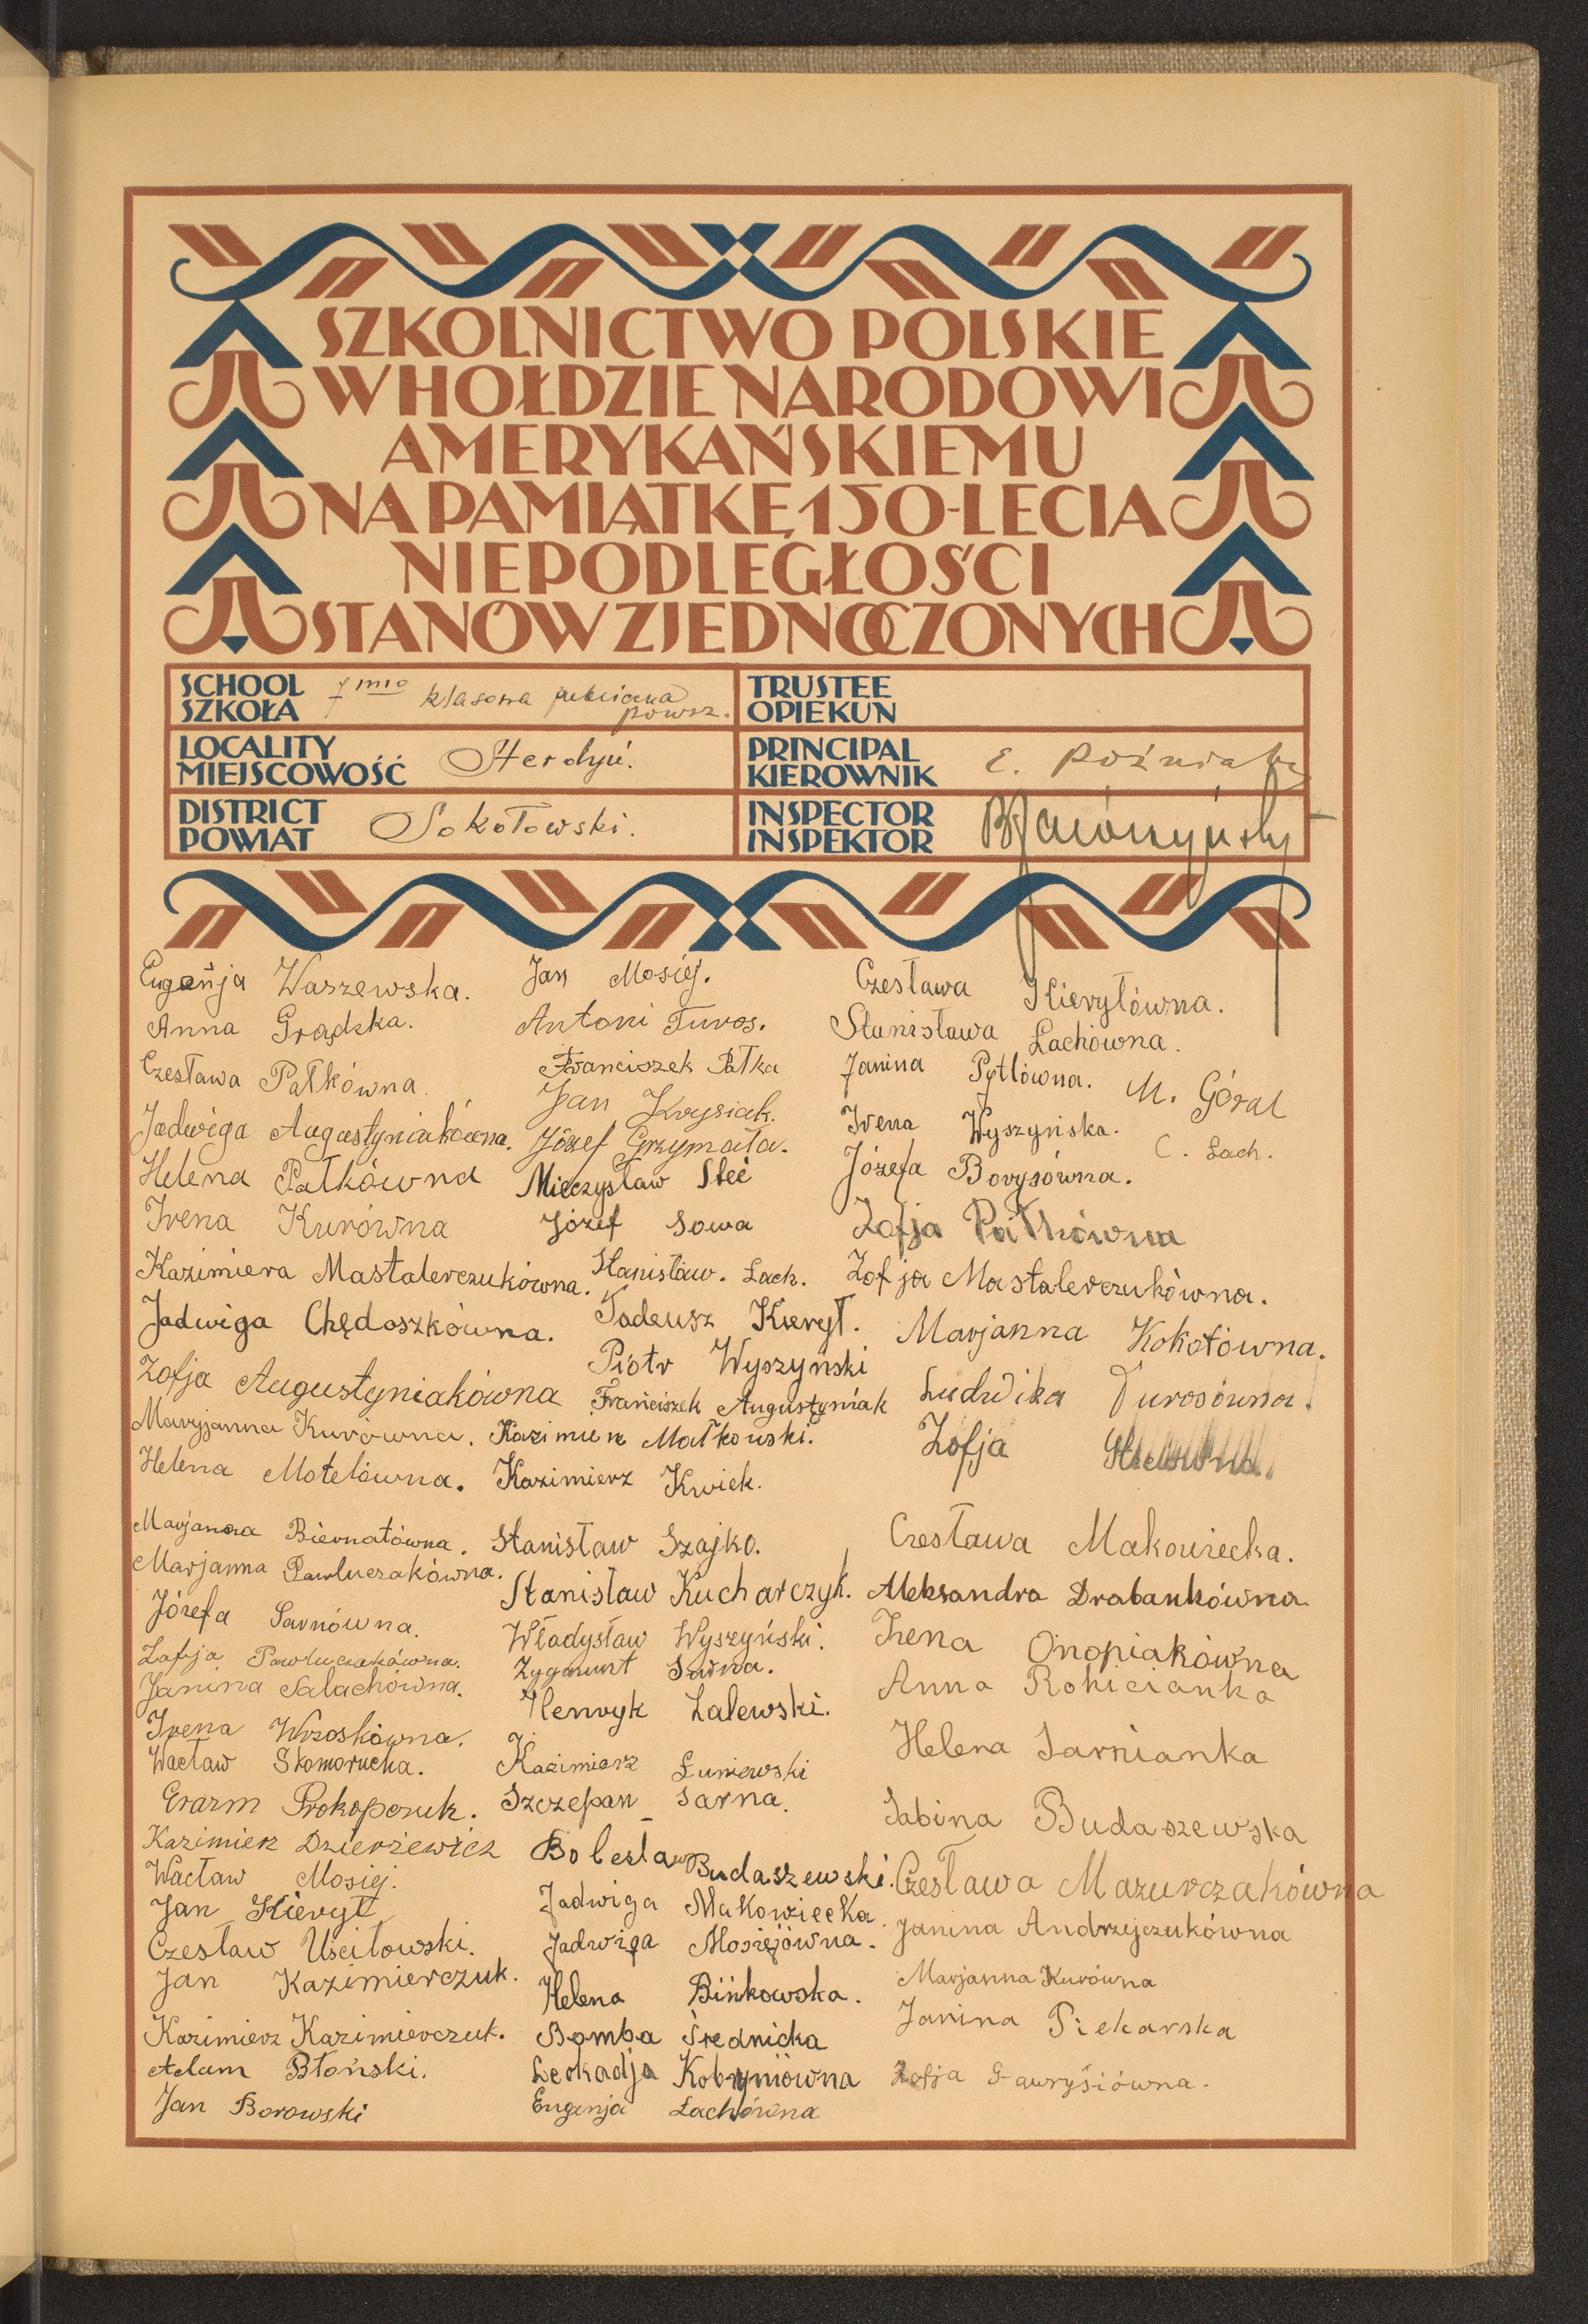 SZKOLNICTWO POLSKIE
W HOŁDZIE NARODOWI
AMERYKAŃSKIEMU
NA PAMIĄTKĘ 150-LECIA
NIEPODLEGŁOŚCI
STANÓW ZJEDNOCZONYCH
SCHOOL
SZKOŁA
7 mio klasowa publiczna
powsz.
TRUSTEE
OPIEKUN
LOCALITY
MIEJSCOWOŚĆ
Sterdyń.
PRINCIPAL
KIEROWNIK
E. Poźniak
DISTRICT
POWIAT
Sokołowski.
INSPECTOR
INSPEKTOR
Eugenja Waszewska.
Anna Grądzka.
Czesława Pałkówna.
Jadwiga Augustyniakówna.
Helena Pałkówna
Irena Kurówna
Kazimiera Mastalerczukówna.
Jadwiga Chędoszkówna.
Zofja Augustyniakówna
Maryjanna Kurówna.
Helena Motelówna.
Marjanna Biernatówna.
Marjanna Pawluczakówna.
Józefa Sarnówna.
Zofja Pawluczakówna.
Janina Salachówna.
Irena Wrzoskówna.
Wacław Skomorucha.
Erazm Prokopczuk.
Kazimierz Dzierżewicz
Wacław Mosiej.
Jan Kierył
Czesław Uściłowski.
Jan Kazimierczuk.
Kazimierz Kazimierczuk.
Adam Błoński.
Jan Borowski
Jan Mosiej.
Antoni Turos.
Franciszek Pałka
Jan Krysiak.
Józef Grzymała.
Mieczysław Steć
Józef Sowa
Stanisław. Lach.
Tadeusz Kierył.
Piotr Wyszynski
Franciszek Augustyniak
Kazimierz Małkowski.
Kazimierz Kwiek.
Stanisław Szajko.
Stanisław Kucharczyk.
Władysław Wyszyński.
Zygmunt Sarna.
Henryk Zalewski.
Kazimierz Łuniewski
Szczepan Sarna.
Bolesław Budaszewski.
Jadwiga Makowiecka.
Jadwiga Mosiejówna.
Helena Bińkowska.
Bomba Średnicka
Leokadja Kobyniówna
Eugenja Lachówna
Czesława Kieryłówna.
Stanisława Lachówna.
Janina Pytlówna.
M. Góral
Irena Wyszyńska.
C. Lach.
Józefa Borysówna.
Zofja Pałkówna
Zofja Mastalerczukówna.
Marjanna Kokotówna.
Ludwika Turosówna.
Zofja
Czesława Makowiecka.
Aleksandra Drabankówna.
Irena Onopiakówna
Anna Rokicianka
Helena Sarnianka
Sabina Budaszewska
Czesława Mazurczakówna
Janina Andrzejczukówna
Marjanna Kurówna
Janina Piekarska
Zofja Gawryśiówna.